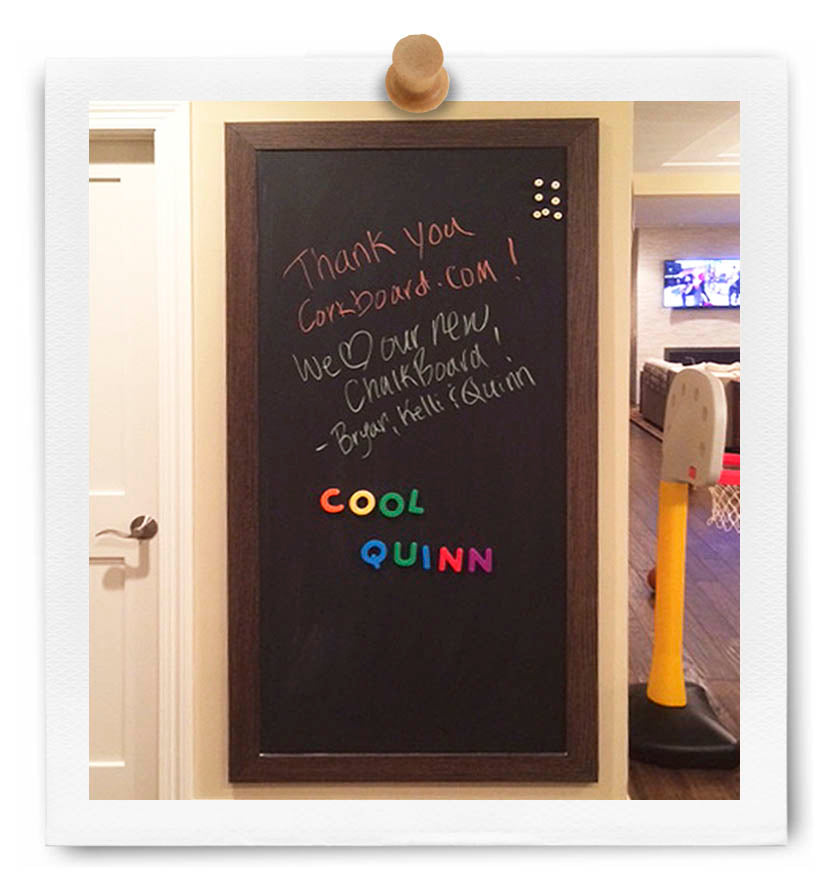 Thank you
Corkboard.com!
We ♡ our new
ChalkBoard!
- Bryan, Kelli & Quinn
COOL
QUINN